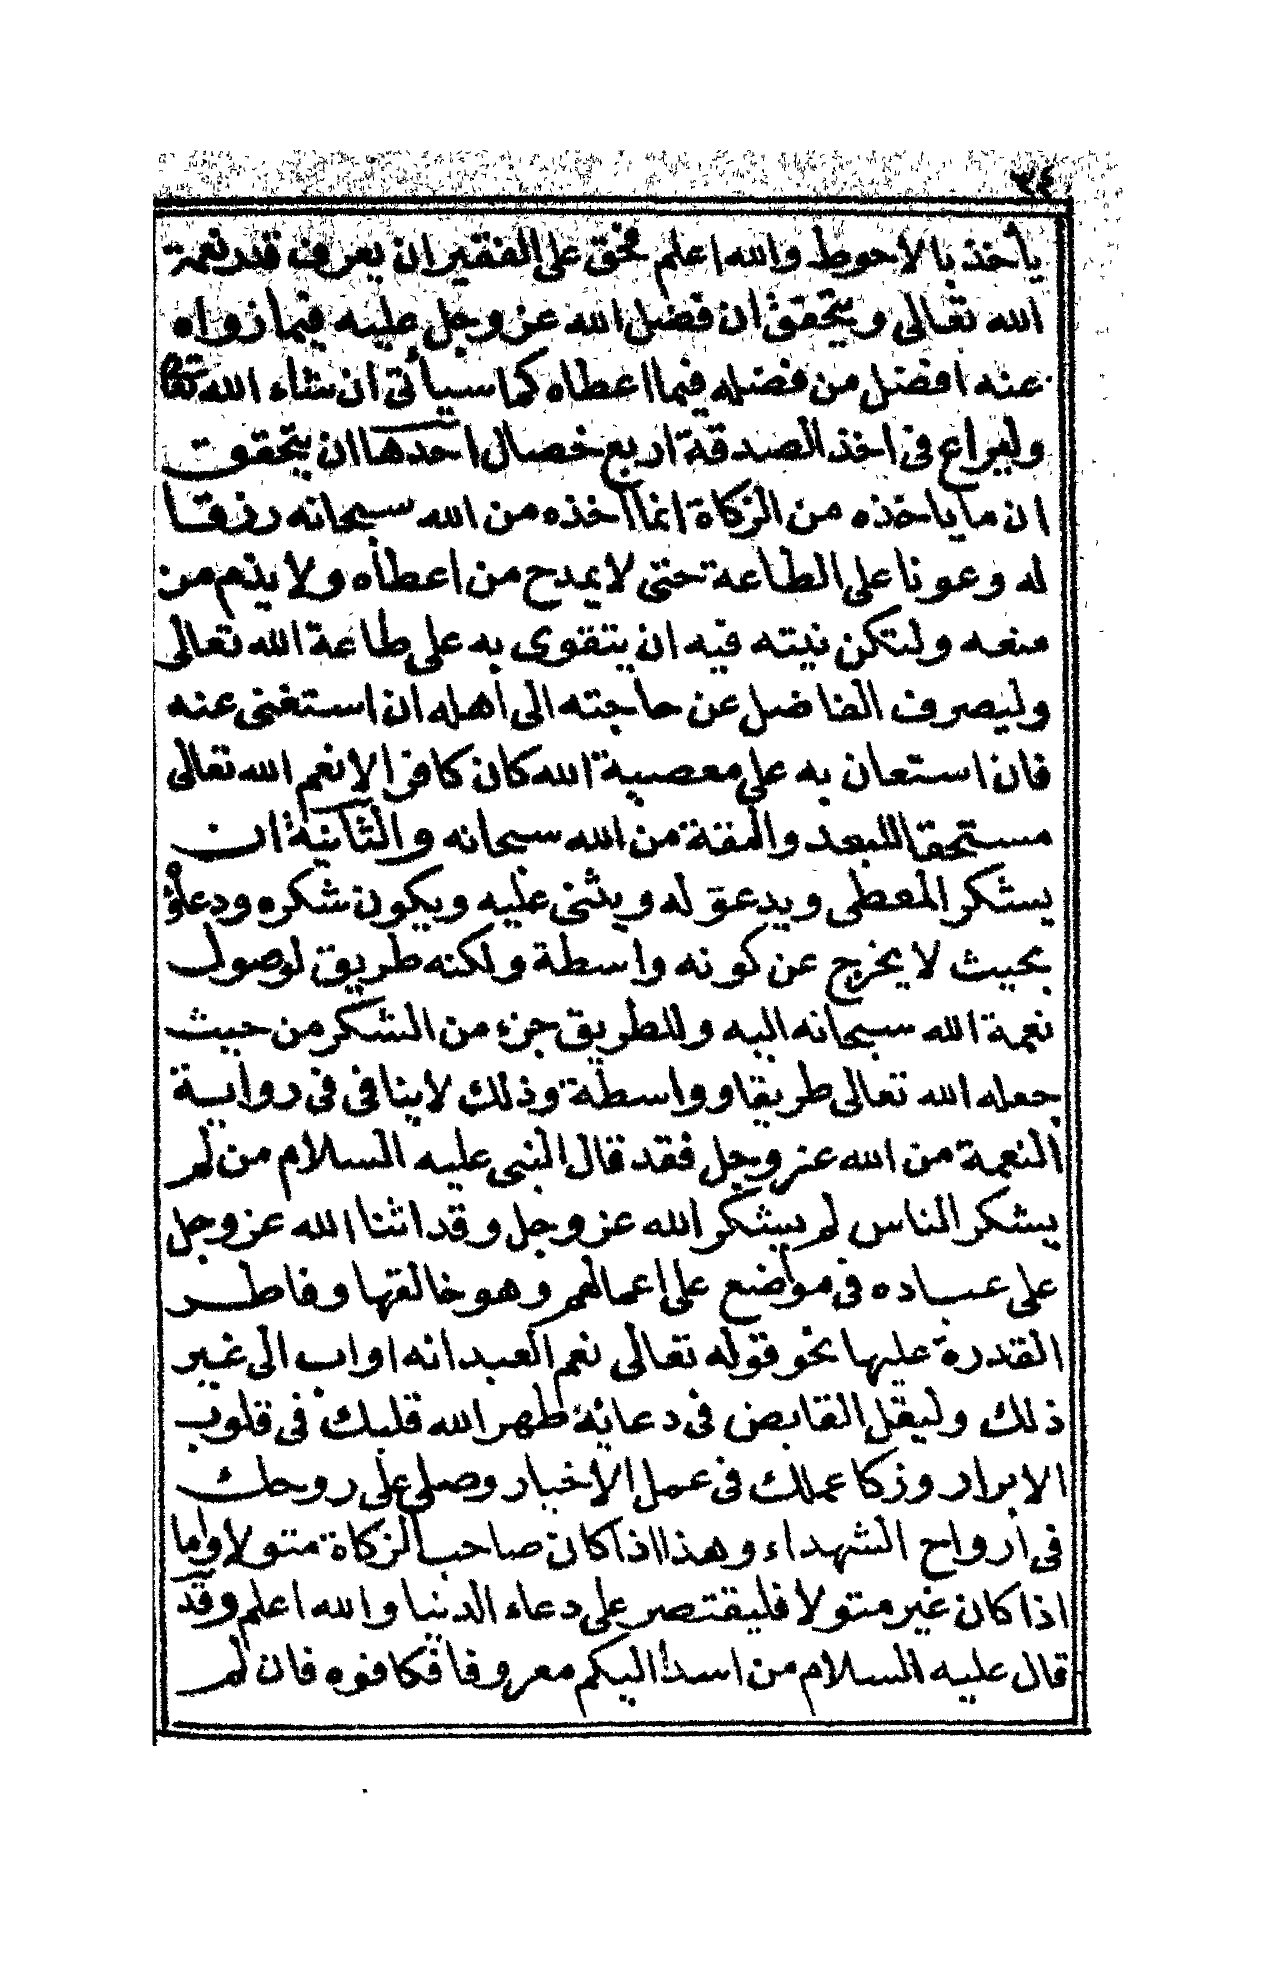 ٢٤
يأخذ بالاحوط والله اعلم فحق على الفقير ان يعرف قدر نعمة
الله تعالى ويتحقق ان فضل الله عز وجل عليه فيما زواه
عنه افضل من فضله فيما اعطاه كما سيأتى ان شاء الله تعا
وليراع فى اخذ الصدقة اربع خصال احدها ان يتحقق
ان ما ياخذه من الزكاة انما اخذه من الله سبحانه رزقا
له وعونا على الطاعة حتى لا يمدح من اعطاه ولا يذم من
منعه ولتكن نيته فيه ان يتقوى به على طاعة الله تعالى
وليصرف الفاضل عن حاجته الى اهله ان استغنى عنه
فان استعان به على معصية الله كان كافرا لانعم الله تعالى
مستحقا للبعد والمقة من الله سبحانه والثانية ان
يشكر المعطى ويدعو له ويثنى عليه ويكون شكره ودعاؤه
بحيث لا يخرج عن كونه واسطة ولكنه طريق لوصول
نعمة الله سبحانه اليه وللطريق جزء من الشكر من حيث
جعله الله تعالى طريقا وواسطة وذلك لا ينافى فى رواية
النعمة من الله عز وجل فقد قال النبى عليه السلام من لم
يشكر الناس لم يشكر الله عز وجل وقد اثنا الله عز وجل
على عباده فى مواضع على اعمالهم وهو خالقها وفاطر
القدرة عليها نحو قوله تعالى نعم العبد انه اواب الى غير
ذلك وليقل القابض فى دعائه طهر الله قلبك فى قلوب
الابرار وزكا عملك فى عمل الاخيار وصلى على روحك
فى ارواح الشهداء وهذا اذا كان صاحب الزكاة متولا واما
اذا كان غير متولا فليقتصر على دعاء الدنيا والله اعلم وقد
قال عليه السلام من اسدا اليكم معروفا فكافوه فان لم